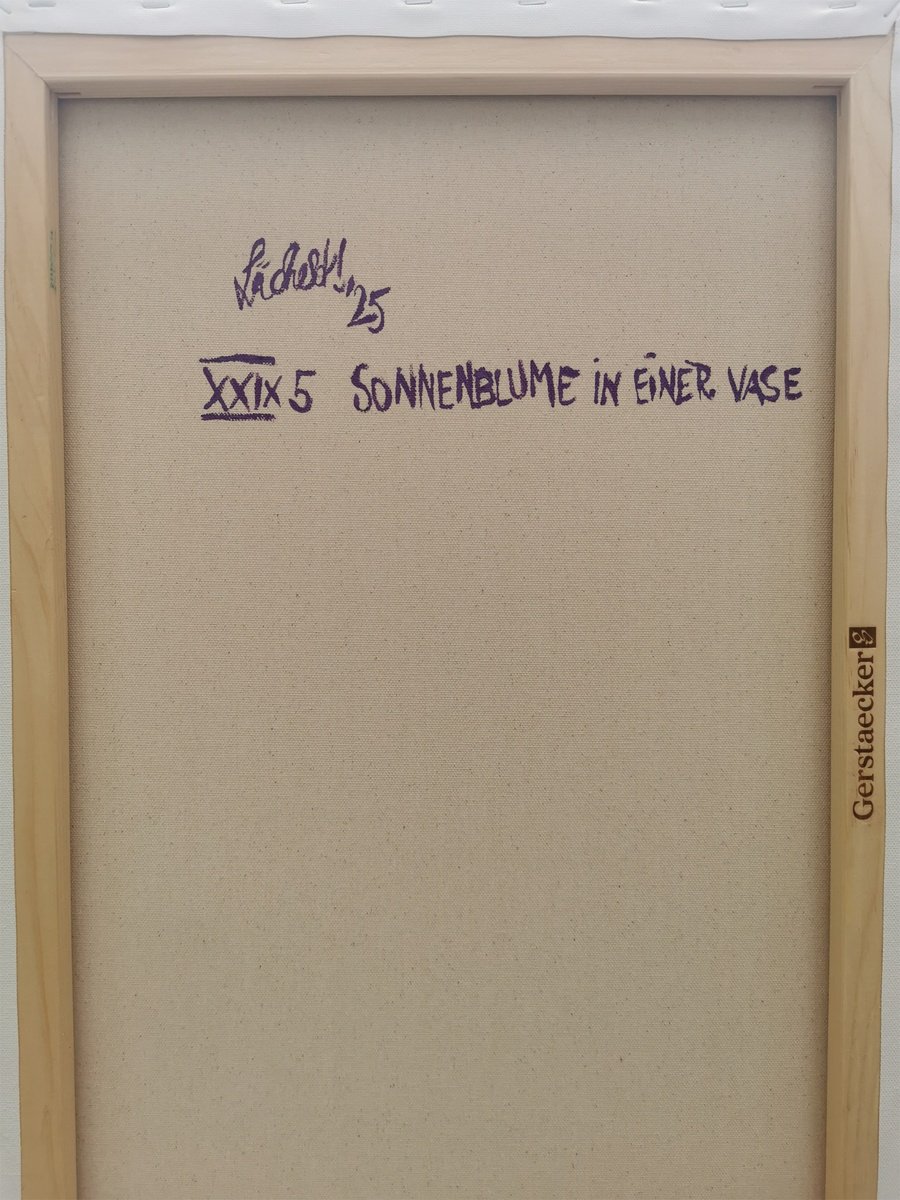 25
XXIX 5 SONNENBLUME IN EINER VASE
Gerstaecker